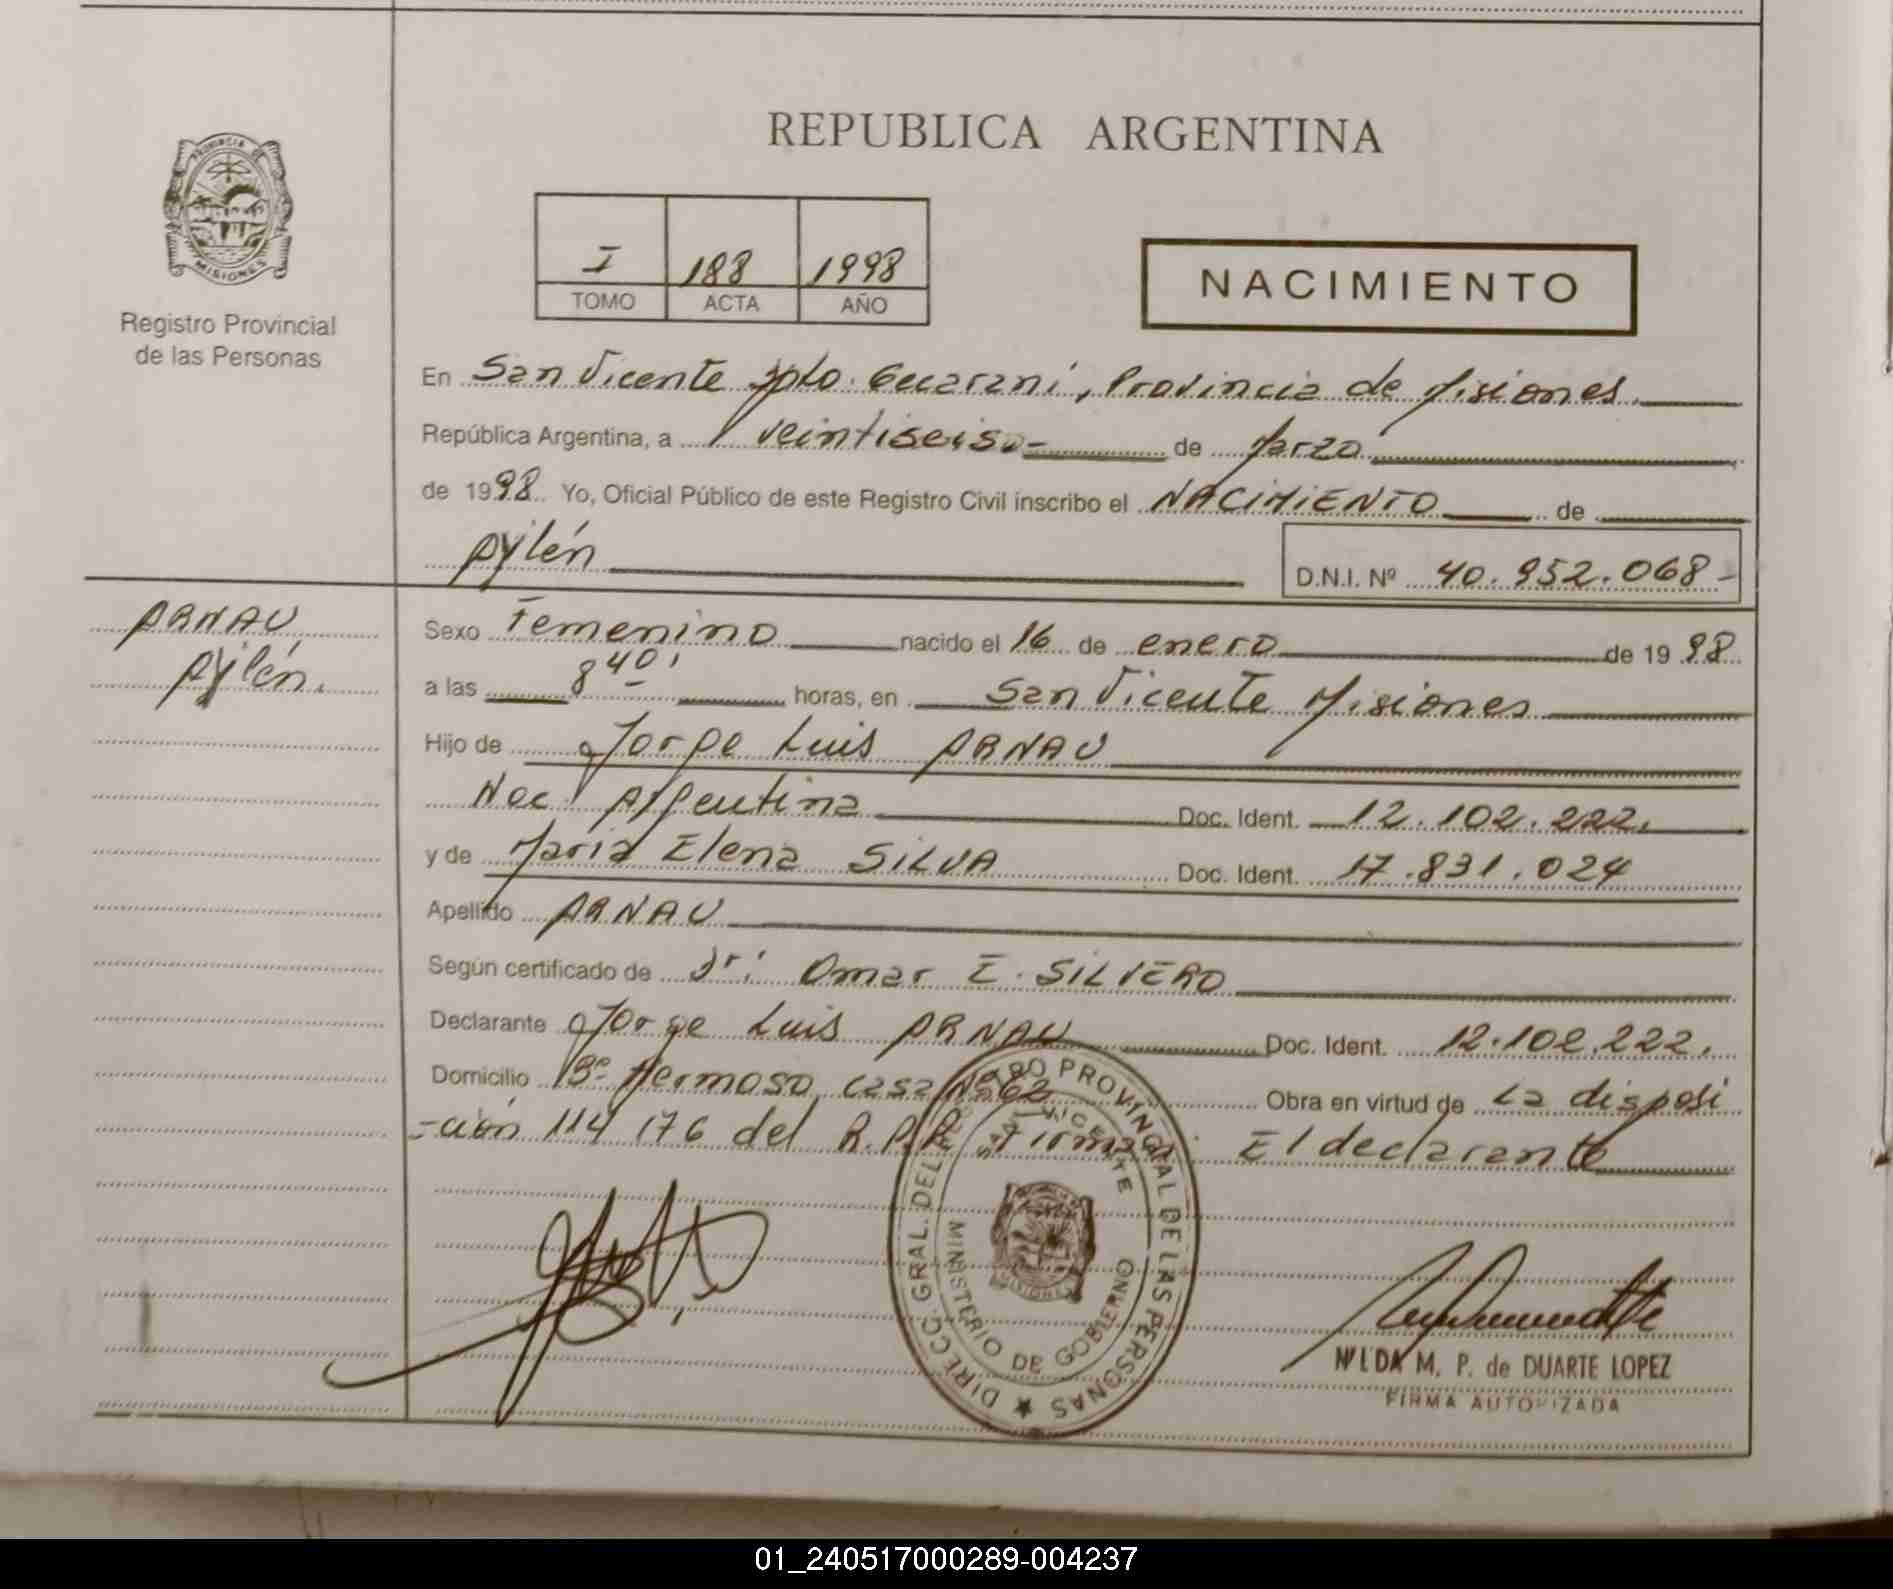 REPUBLICA ARGENTINA
PROVINCIA DE
MISIONES
Registro Provincial
de las Personas
I 188 1998
TOMO ACTA AÑO
NACIMIENTO
En San Vicente Dpto. Guaraní, Provincia de Misiones
República Argentina, a veintiseis de Marzo
de 1998 Yo, Oficial Público de este Registro Civil inscribo el NACIMIENTO de
Aylén D.N.I. Nº 40.952.068-
ARNAU
Aylén.
Sexo Femenino nacido el 16 de enero de 1998
a las 8 40' horas, en San Vicente Misiones
Hijo de Jorge Luis ARNAU
Nac. Argentina Doc. Ident. 12.102.222.
y de Maria Elena SILVA Doc. Ident. 17.831.024
Apellido ARNAU
Según certificado de Dr: Omar E. SILVERO
Declarante Jorge Luis ARNAU Doc. Ident. 12.102.222.
Domicilio Bº Hermoso casa Nº62 Obra en virtud de La disposi
-ción 114/176 del R.P.P. Firma: El declarante
DIRECC. GRAL. DEL REGISTRO PROVINCIAL DE LAS PERSONAS
SAN VICENTE
MINISTERIO DE GOBIERNO
MISIONES
NILDA M. P. de DUARTE LOPEZ
FIRMA AUTORIZADA
01_240517000289-004237